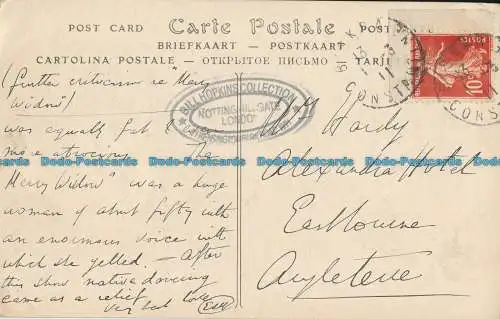 POST CARD Carte Postale
BRIEFKAART - POSTKAART
CARTOLINA POSTALE - ОТКРЫТОЕ ПИСЬМО TARJE
(further criticism re "Merry
Widow")
was equally fat &
more atrocious. The
Merry Widow" was a huge
woman of about fifty with
an enormous voice with
which she yelled. - After
this show native dancing
came as a relief.
very best love
BILL HOPKINS COLLECTION
NOTTING HILL GATE
LONDON
Hardy
Alexandra Hotel
Eastbourne
Angleterre
KRA
CONST
10
POSTES
CONS
Dodo-Postcards Dodo-Postcards Dodo-Postcards Dodo-Postcards Dodo-Postcards